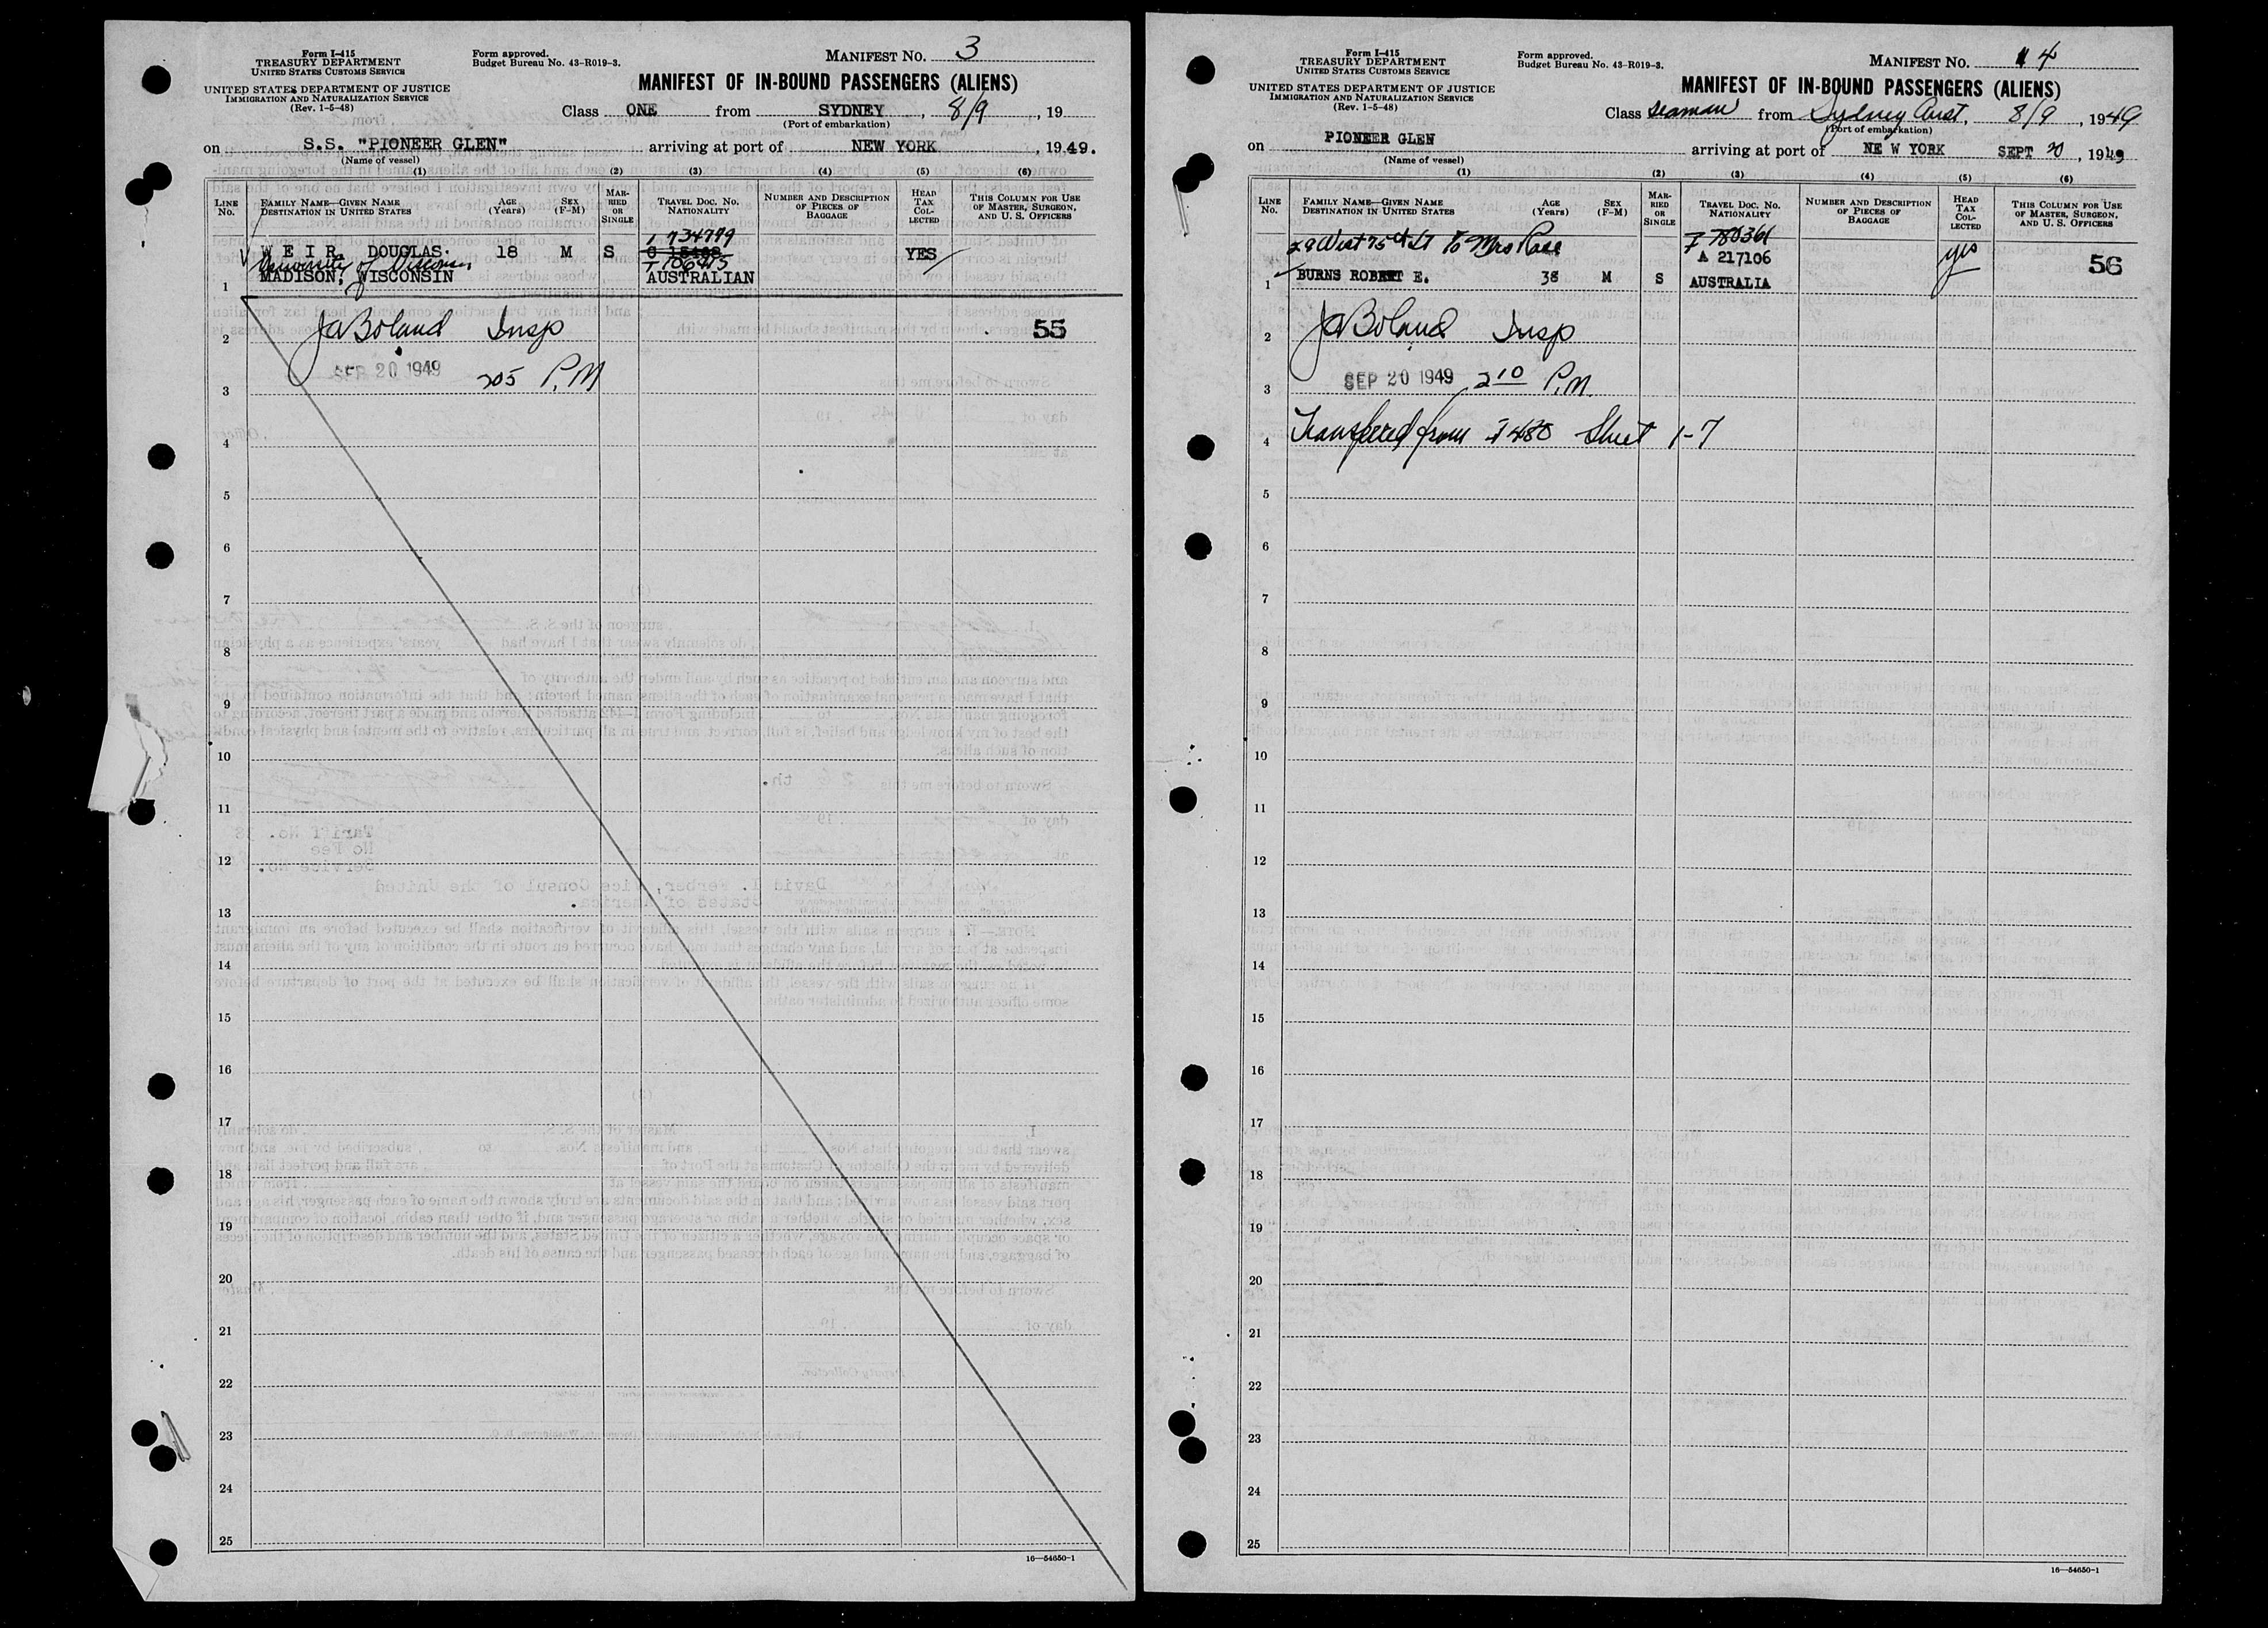 Form I-415
TREASURY DEPARTMENT
UNITED STATES CUSTOMS SERVICE
UNITED STATES DEPARTMENT OF JUSTICE
IMMIGRATION AND NATURALIZATION SERVICE
(Rev. 1-5-48)
Form approved.
Budget Bureau No. 43-R019-3.
MANIFEST NO. 3
MANIFEST OF IN-BOUND PASSENGERS (ALIENS)
Class ONE from SYDNEY, 8/9, 19
(Port of embarkation)
on S.S. "PIONEER GLEN" arriving at port of NEW YORK, 1949.
(Name of vessel)
(1) (2) (3) (4) (5) (6)
LINE No. FAMILY NAME—GIVEN NAME DESTINATION IN UNITED STATES AGE (Years) SEX (F-M) MARRIED OR SINGLE TRAVEL DOC. NO. NATIONALITY NUMBER AND DESCRIPTION OF PIECES OF BAGGAGE HEAD TAX COLLECTED THIS COLUMN FOR USE OF MASTER, SURGEON, AND U. S. OFFICERS
734779
WEIR, DOUGLAS. 18 M S YES
University of
1 MADISON, WISCONSIN AUSTRALIAN
2 JA Boland Insp 55
3 SEP 20 1949 205 P.M
4
5
6
7
8
9
10
11
12
13
14
15
16
17
18
19
20
21
22
23
24
25
16—54650-1
Form I-415
TREASURY DEPARTMENT
UNITED STATES CUSTOMS SERVICE
UNITED STATES DEPARTMENT OF JUSTICE
IMMIGRATION AND NATURALIZATION SERVICE
(Rev. 1-5-48)
Form approved.
Budget Bureau No. 43-R019-3.
MANIFEST NO. 4
MANIFEST OF IN-BOUND PASSENGERS (ALIENS)
Class Seaman from Sydney Aust, 8/9, 1949
(Port of embarkation)
on PIONEER GLEN arriving at port of NEW YORK SEPT 20, 1949
(Name of vessel)
(1) (2) (3) (4) (5) (6)
LINE No. FAMILY NAME—GIVEN NAME DESTINATION IN UNITED STATES AGE (Years) SEX (F-M) MARRIED OR SINGLE TRAVEL DOC. NO. NATIONALITY NUMBER AND DESCRIPTION OF PIECES OF BAGGAGE HEAD TAX COLLECTED THIS COLUMN FOR USE OF MASTER, SURGEON, AND U. S. OFFICERS
29 West 75th St To Mrs
A 217106 yes 56
1 BURNS ROBERT E. 38 M S AUSTRALIA
2 JA Boland Insp
3 SEP 20 1949 2 10 P.M.
4 Transferred from I 480 Sheet 1-7
5
6
7
8
9
10
11
12
13
14
15
16
17
18
19
20
21
22
23
24
25
16—54650-1